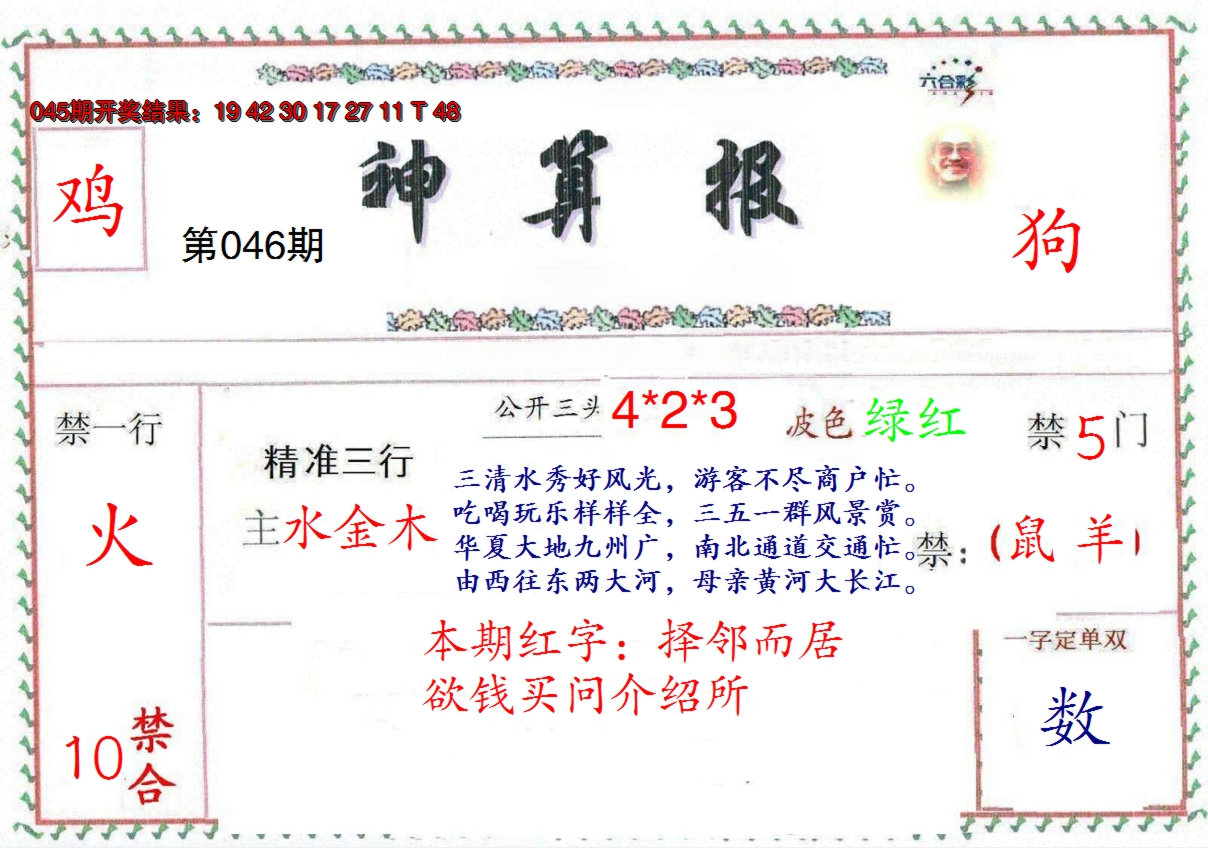 045期开奖结果：19 42 30 17 27 11 T 48
六合彩
鸡
神算报
第046期
狗
禁一行
火
10禁合
精准三行
主水金木
公开三头 4*2*3
波色 绿红
禁5门
三清水秀好风光，游客不尽商户忙。
吃喝玩乐样样全，三五一群风景赏。
华夏大地九州广，南北通道交通忙。
由西往东两大河，母亲黄河大长江。
禁：(鼠 羊)
本期红字：择邻而居
欲钱买问介绍所
一字定单双
数